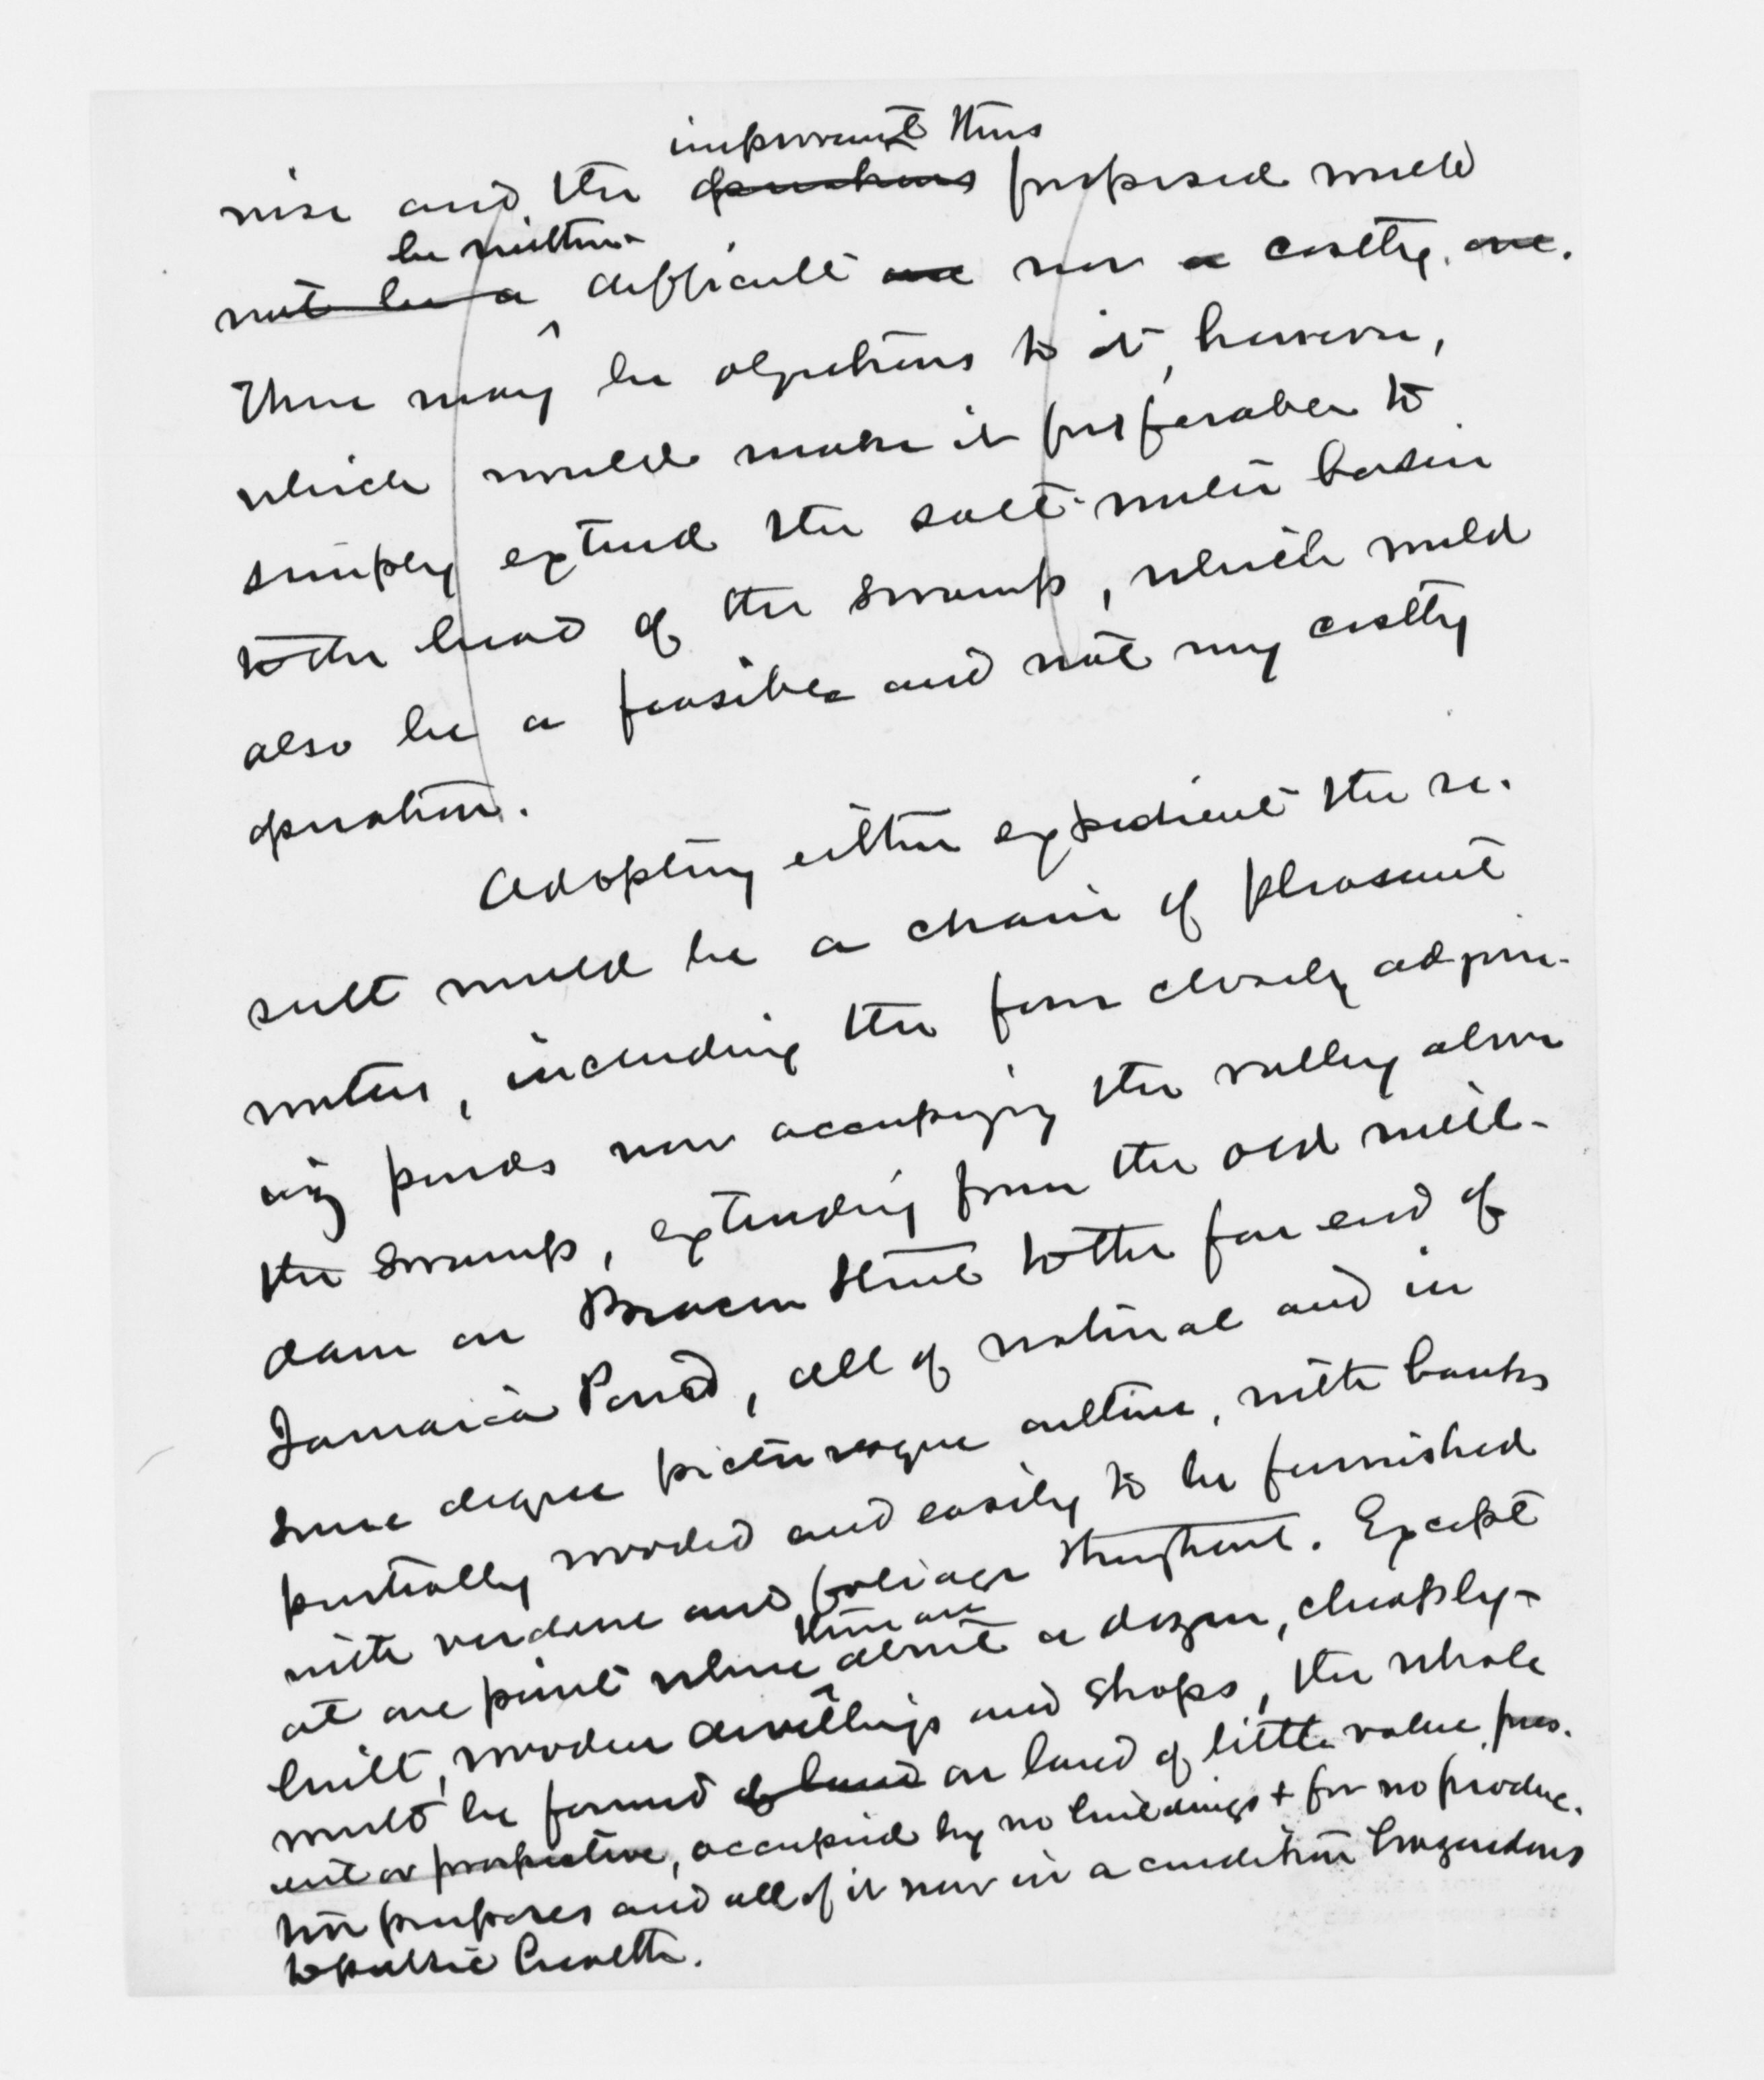 important thus
wise and the operations proposed would
be neither
not be a difficult one nor a costly one.
There may be objections to it, however,
which would make it preferable to
simply extend the salt-water basin
to the head of the swamp, which would
also be a feasible and not very costly
operation.
Adopting either expedient the re-
sult would be a chain of pleasant
waters, including the four closely adjoin-
ing ponds now occupying the valley above
the swamp, extending from the old mill-
dam on Beacon Street to the far end of
Jamaica Pond, all of natural and in
some degree picturesque outline, with banks
partially wooded and easily to be furnished
with verdure and foliage throughout. Except
there are
at one point where about a dozen, cheaply-
built, wooden dwellings and shops, the whole
would be found of land on land of little value pres-
ent or prospective, occupied by no buildings + for no produc-
tive purposes and all of it now in a condition hazardous
to public health.